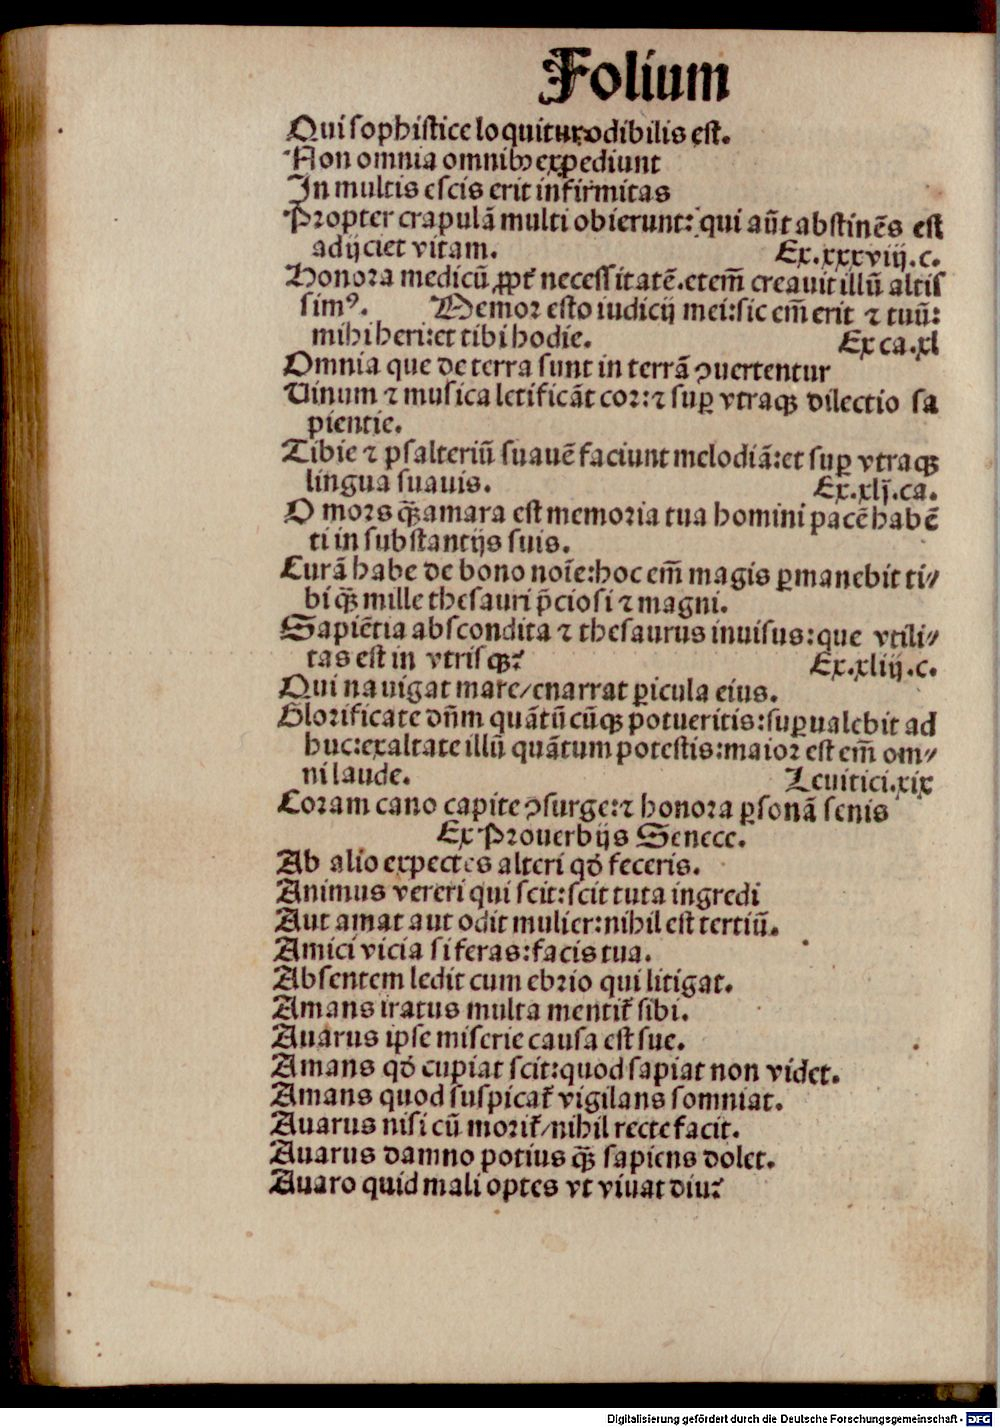 Folium
Qui sophistice loquitur odibilis est.
Non omnia omnibꝫ expediunt
In multis escis erit infirmitas
Propter crapulā multi obierunt: qui aūt abstinēs est
adijciet vitam. Ex.xxxviij.c.
Honora medicū ꝓpt̄ necessitatē. etem̄ creauit illū altis
simꝰ. Memor esto iudicij mei: sic em̄ erit ⁊ tuū:
mihi heri: et tibi hodie. Ex ca.xl
Omnia que de terra sunt in terrā ꝯuertentur
Uinum ⁊ musica letificāt cor: ⁊ suꝑ vtraqꝫ dilectio sa
pientie.
Tibie ⁊ psalteriū suauē faciunt melodiā: et suꝑ vtraqꝫ
lingua suauis. Ex.xlj.ca.
O mors qꝫ̄ amara est memoria tua homini pacē habē
ti in substantijs suis.
Curā habe de bono noīe: hoc em̄ magis ꝑmanebit ti/
bi qꝫ̄ mille thesauri p̄ciosi ⁊ magni.
Sapiētia abscondita ⁊ thesaurus inuisus: que vtili/
tas est in vtrisqꝫ? Ex.xliij.c.
Qui nauigat mare/enarrat ꝑicula eius.
Glorificate dn̄m quātū cūqꝫ potueritis: suꝑualebit ad
huc: exaltate illū quātum potestis: maior est em̄ om/
ni laude. Leuitici.xix
Coram cano capite ꝯsurge: ⁊ honora ꝑsonā senis
Ex Prouerbijs Senece.
Ab alio expectes alteri qđ feceris.
Animus vereri qui scit: scit tuta ingredi
Aut amat aut odit mulier: nihil est tertiū.
Amici vicia si feras: facis tua.
Absentem ledit cum ebrio qui litigat.
Amans iratus multa mentit̄ sibi.
Auarus ipse miserie causa est sue.
Amans qđ cupiat scit: quod sapiat non videt.
Amans quod suspicat̄ vigilans somniat.
Auarus nisi cū morit̄/nihil recte facit.
Auarus damno potius qꝫ̄ sapiens dolet.
Auaro quid mali optes vt viuat diu?
Digitalisierung gefördert durch die Deutsche Forschungsgemeinschaft - DFG